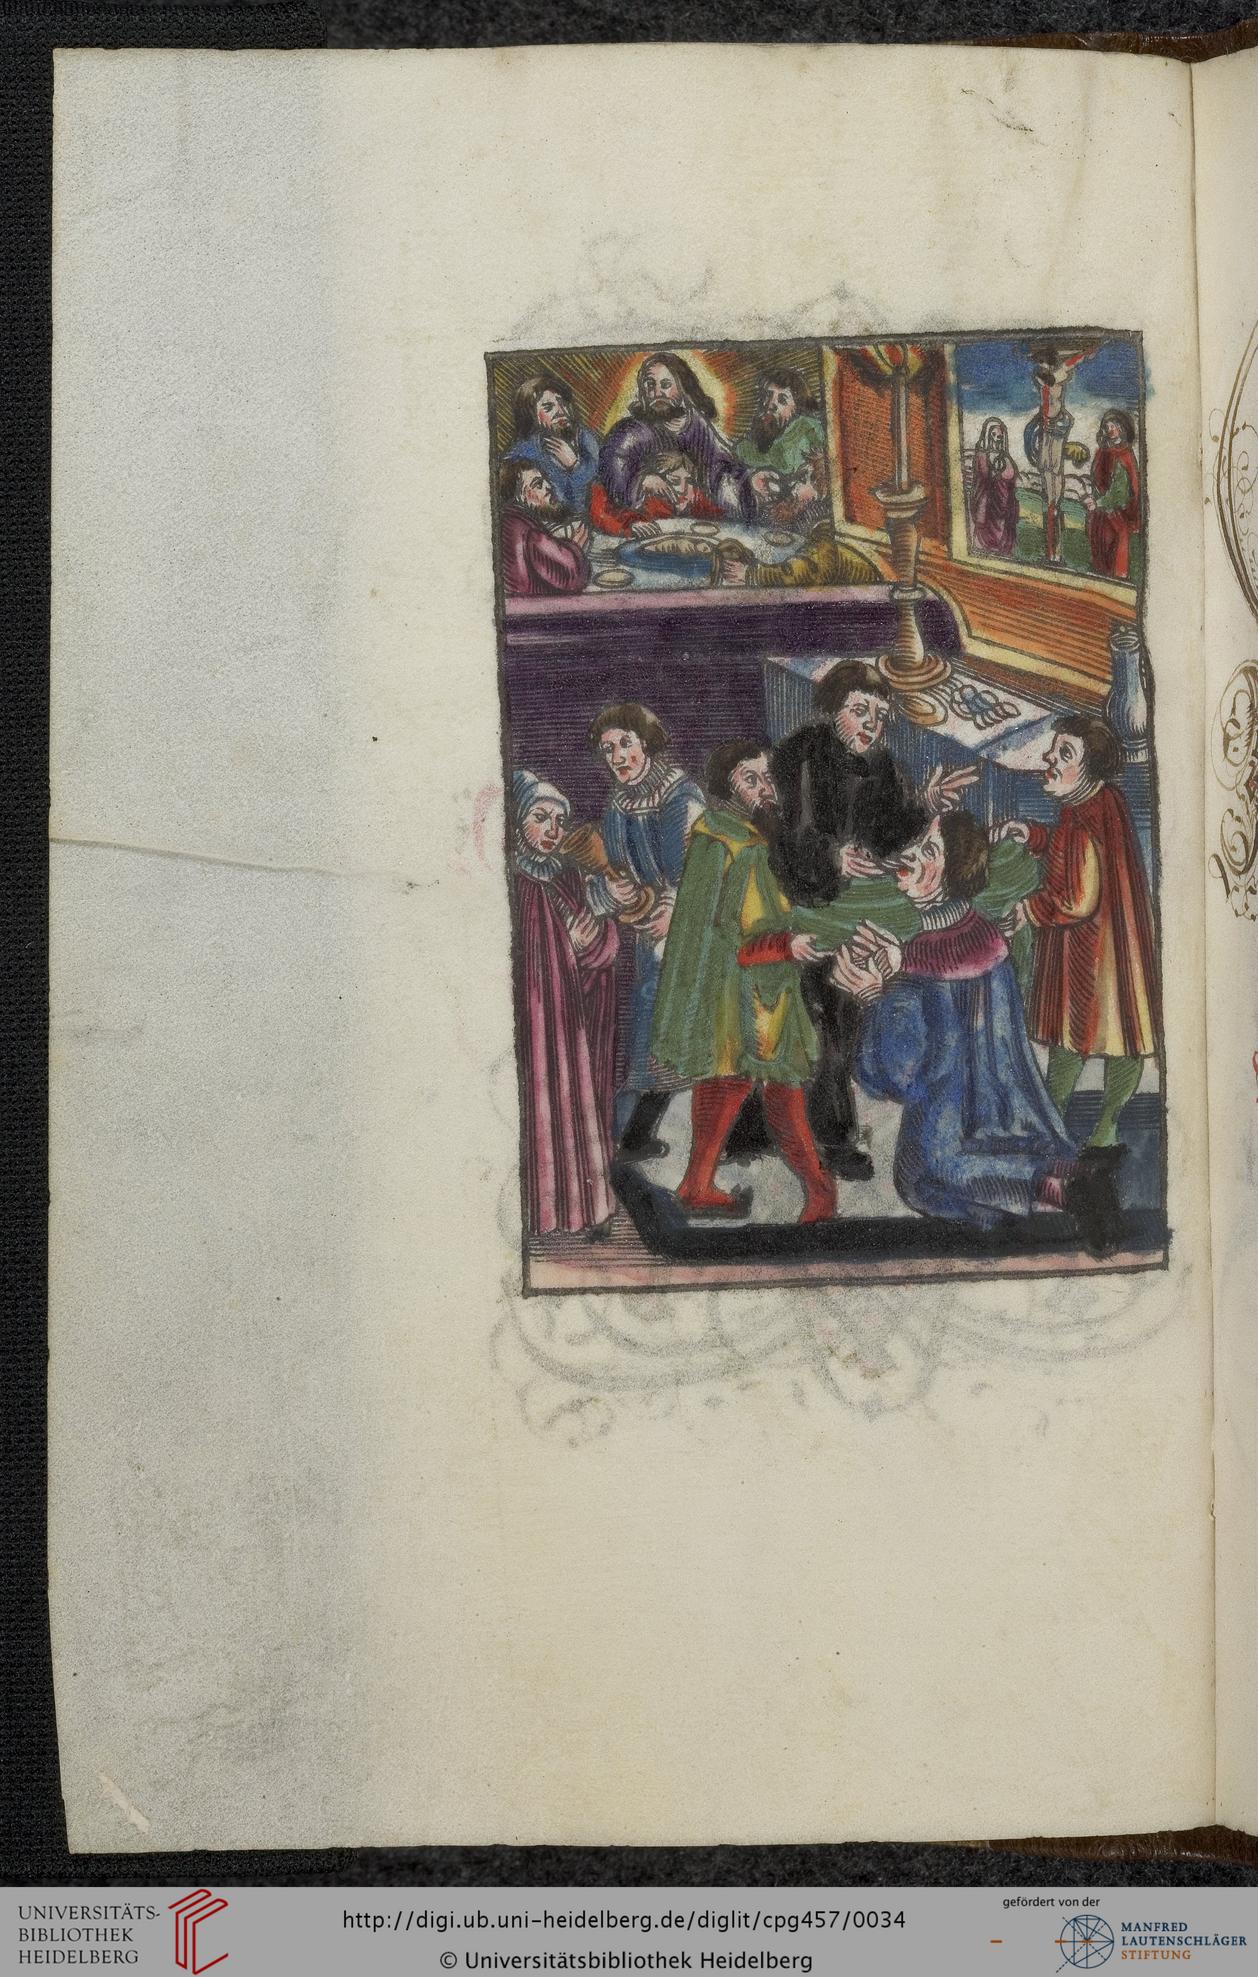 UNIVERSITÄTS-
BIBLIOTHEK
HEIDELBERG
http://digi.ub.uni-heidelberg.de/diglit/cpg457/0034
© Universitätsbibliothek Heidelberg
gefördert von der
MANFRED
LAUTENSCHLÄGER
STIFTUNG